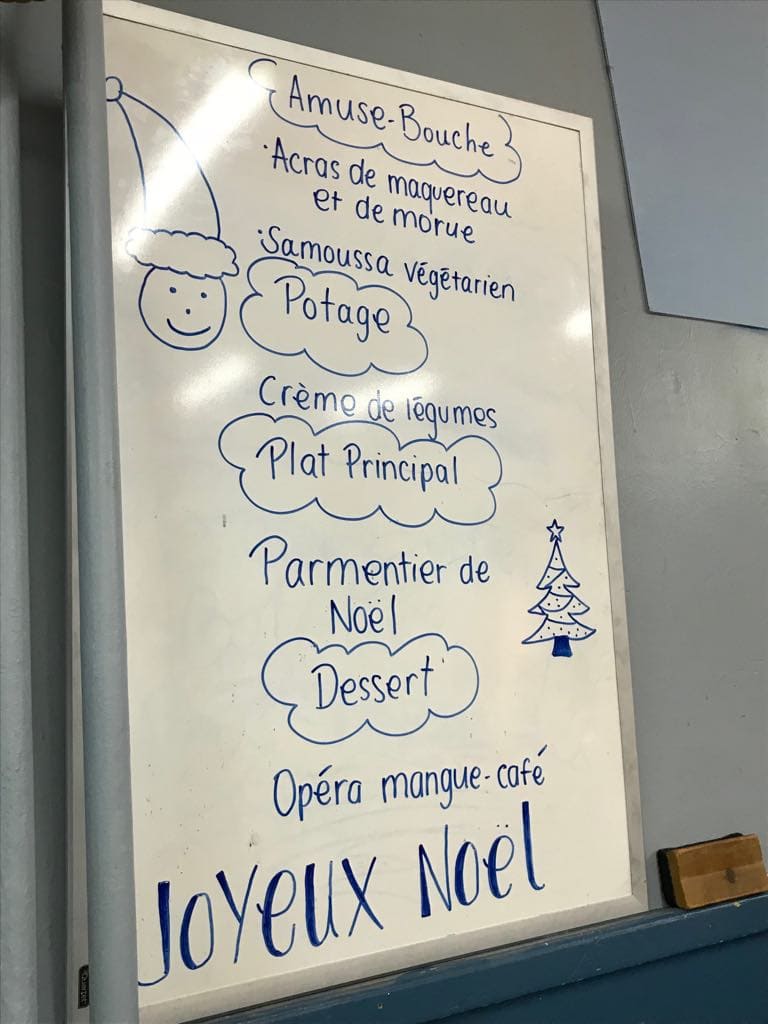 Amuse-Bouche
·Acras de maquereau
et de morue
·Samoussa végétarien
Potage
Crème de légumes
Plat Principal
Parmentier de
Noël
Dessert
Opéra mangue-café
JOYEUX NOËL
Quartet